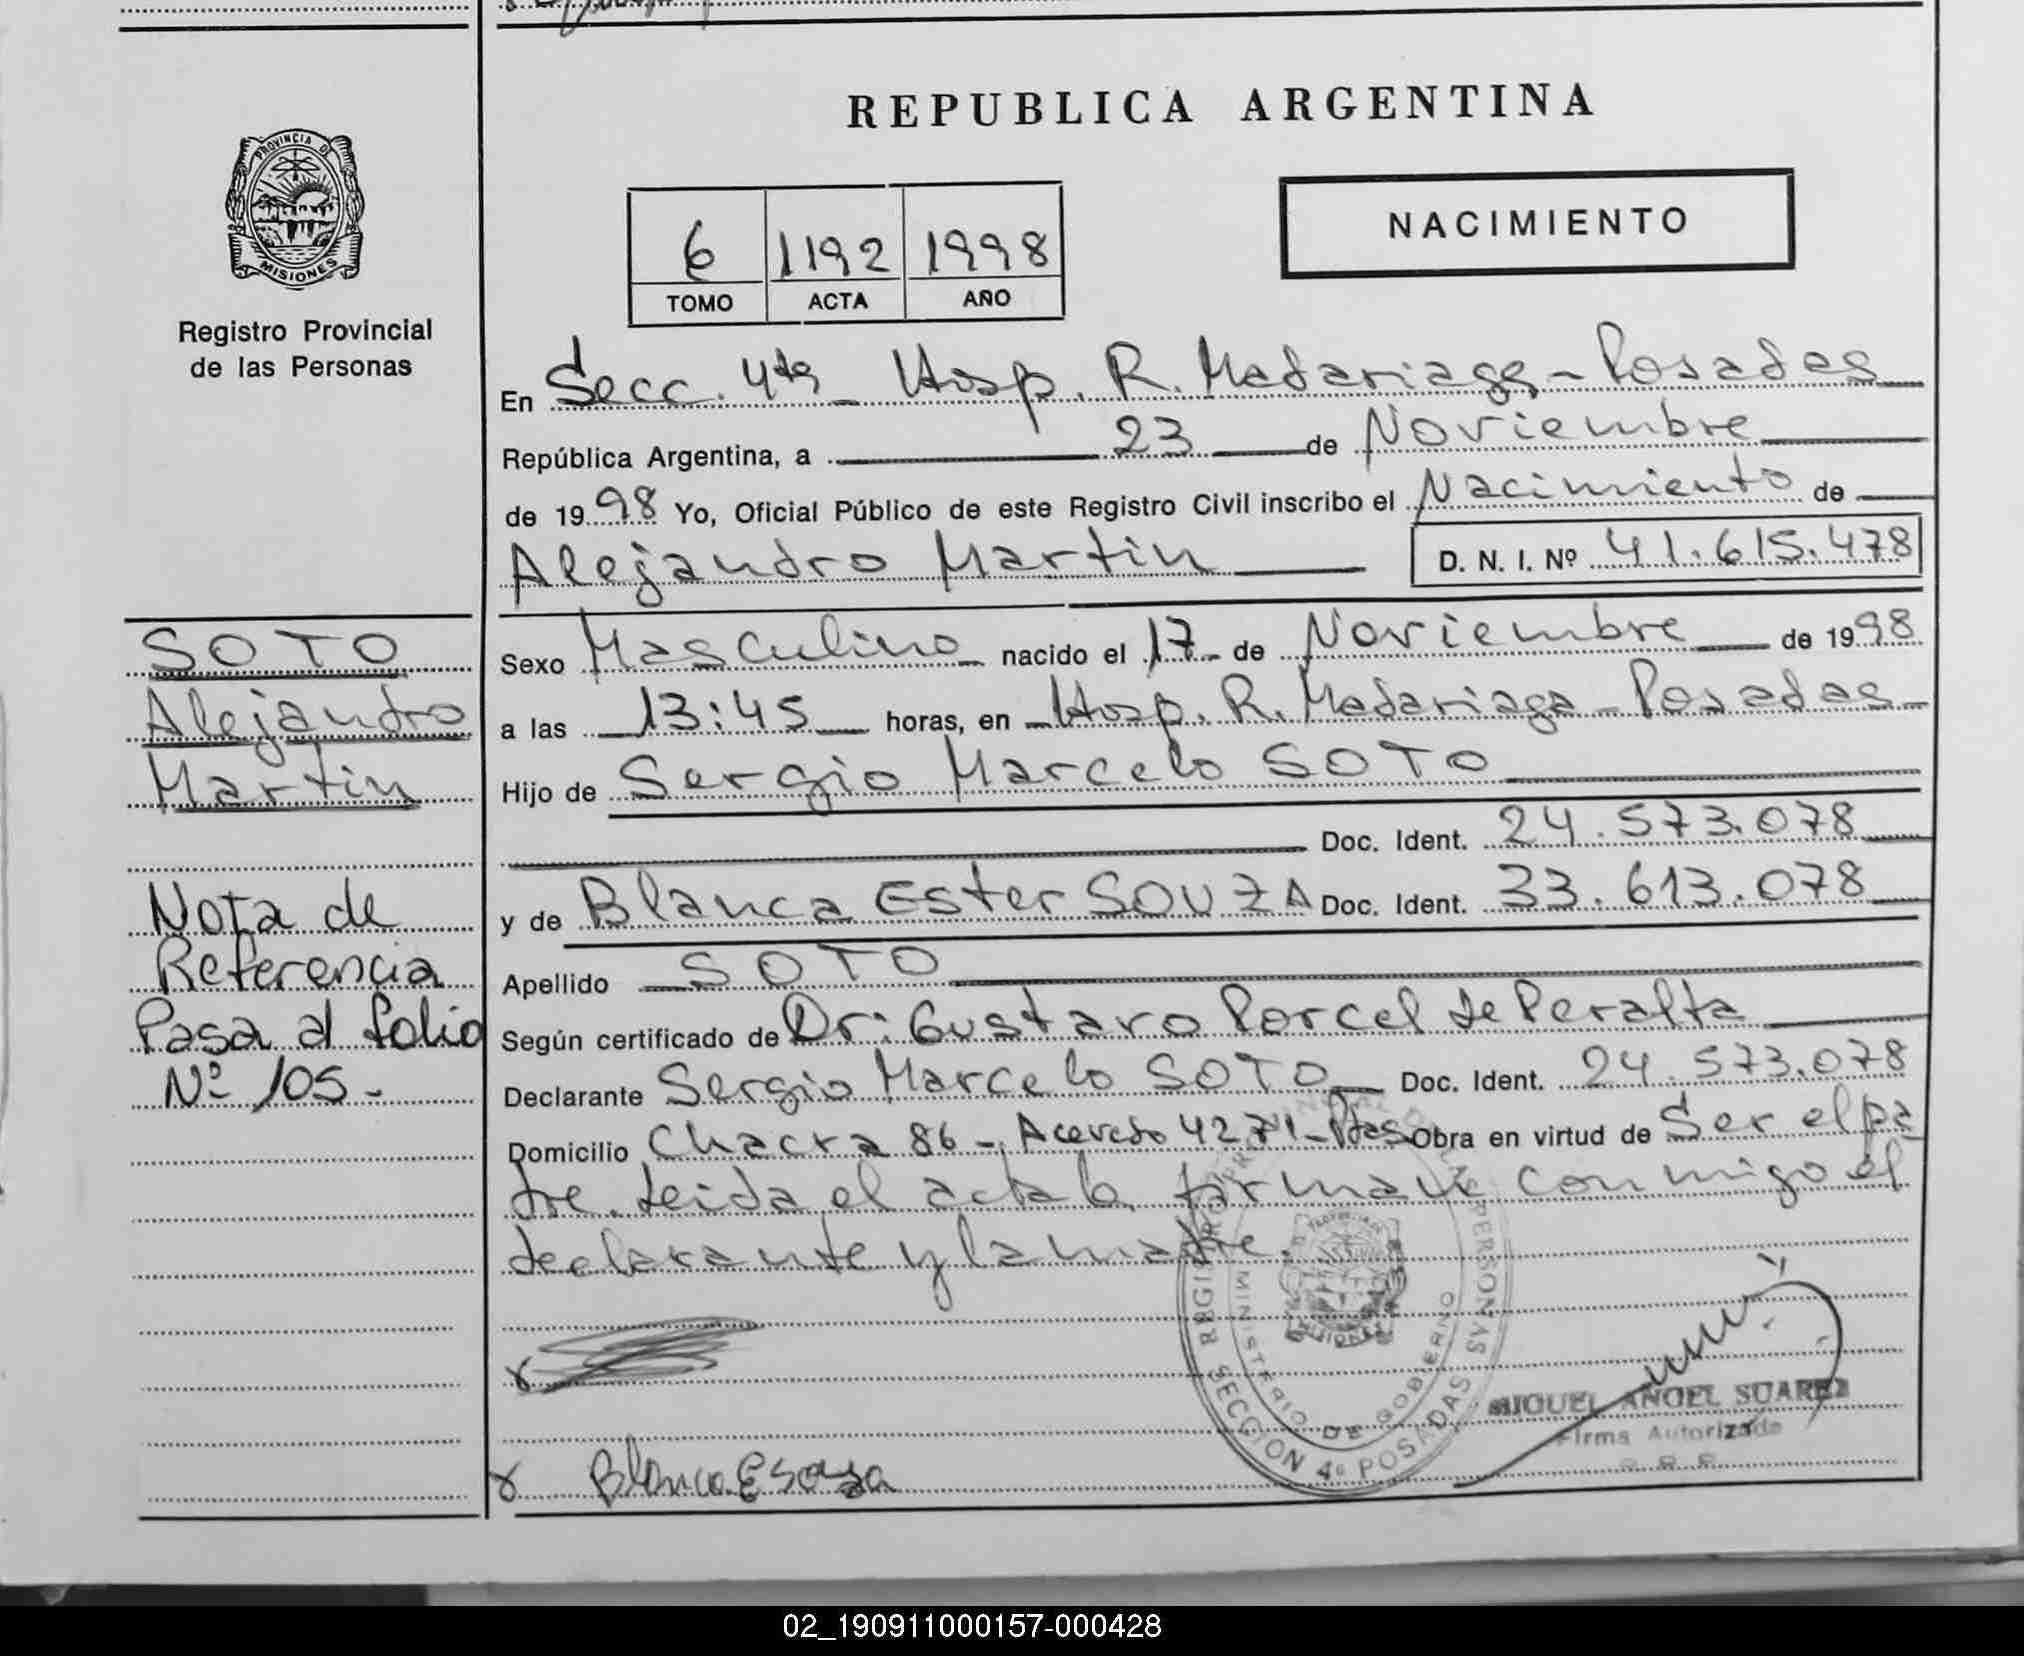 REPUBLICA ARGENTINA
PROVINCIA DE
MISIONES
Registro Provincial
de las Personas
NACIMIENTO
6 1192 1998
TOMO ACTA AÑO
En Secc. 4ta - Hosp. R. Madariaga - Posadas
República Argentina, a 23 de Noviembre
de 1998 Yo, Oficial Público de este Registro Civil inscribo el Nacimiento de
Alejandro Martin D. N. I. Nº 41.615.478
SOTO
Alejandro
Martin
Nota de
Referencia
Pasa al folio
Nº 105.-
Sexo Masculino nacido el 17 de Noviembre de 1998
a las 13:45 horas, en Hosp. R. Madariaga - Posadas
Hijo de Sergio Marcelo SOTO
Doc. Ident. 24.573.078
y de Blanca Ester SOUZA Doc. Ident. 33.613.078
Apellido SOTO
Según certificado de Dr: Gustavo Porcel de Peralta
Declarante Sergio Marcelo SOTO Doc. Ident. 24.573.078
Domicilio Chacra 86 - Acevedo 4271 - Pdas Obra en virtud de Ser el pa
dre. Leida el acta la firman conmigo el
declarante y la madre.
MINISTERIO DE GOBIERNO
SECCION 4ª POSADAS
MISIONES
MIGUEL ANGEL SUAREZ
Firma Autorizada
Blanca E Souza
02_190911000157-000428